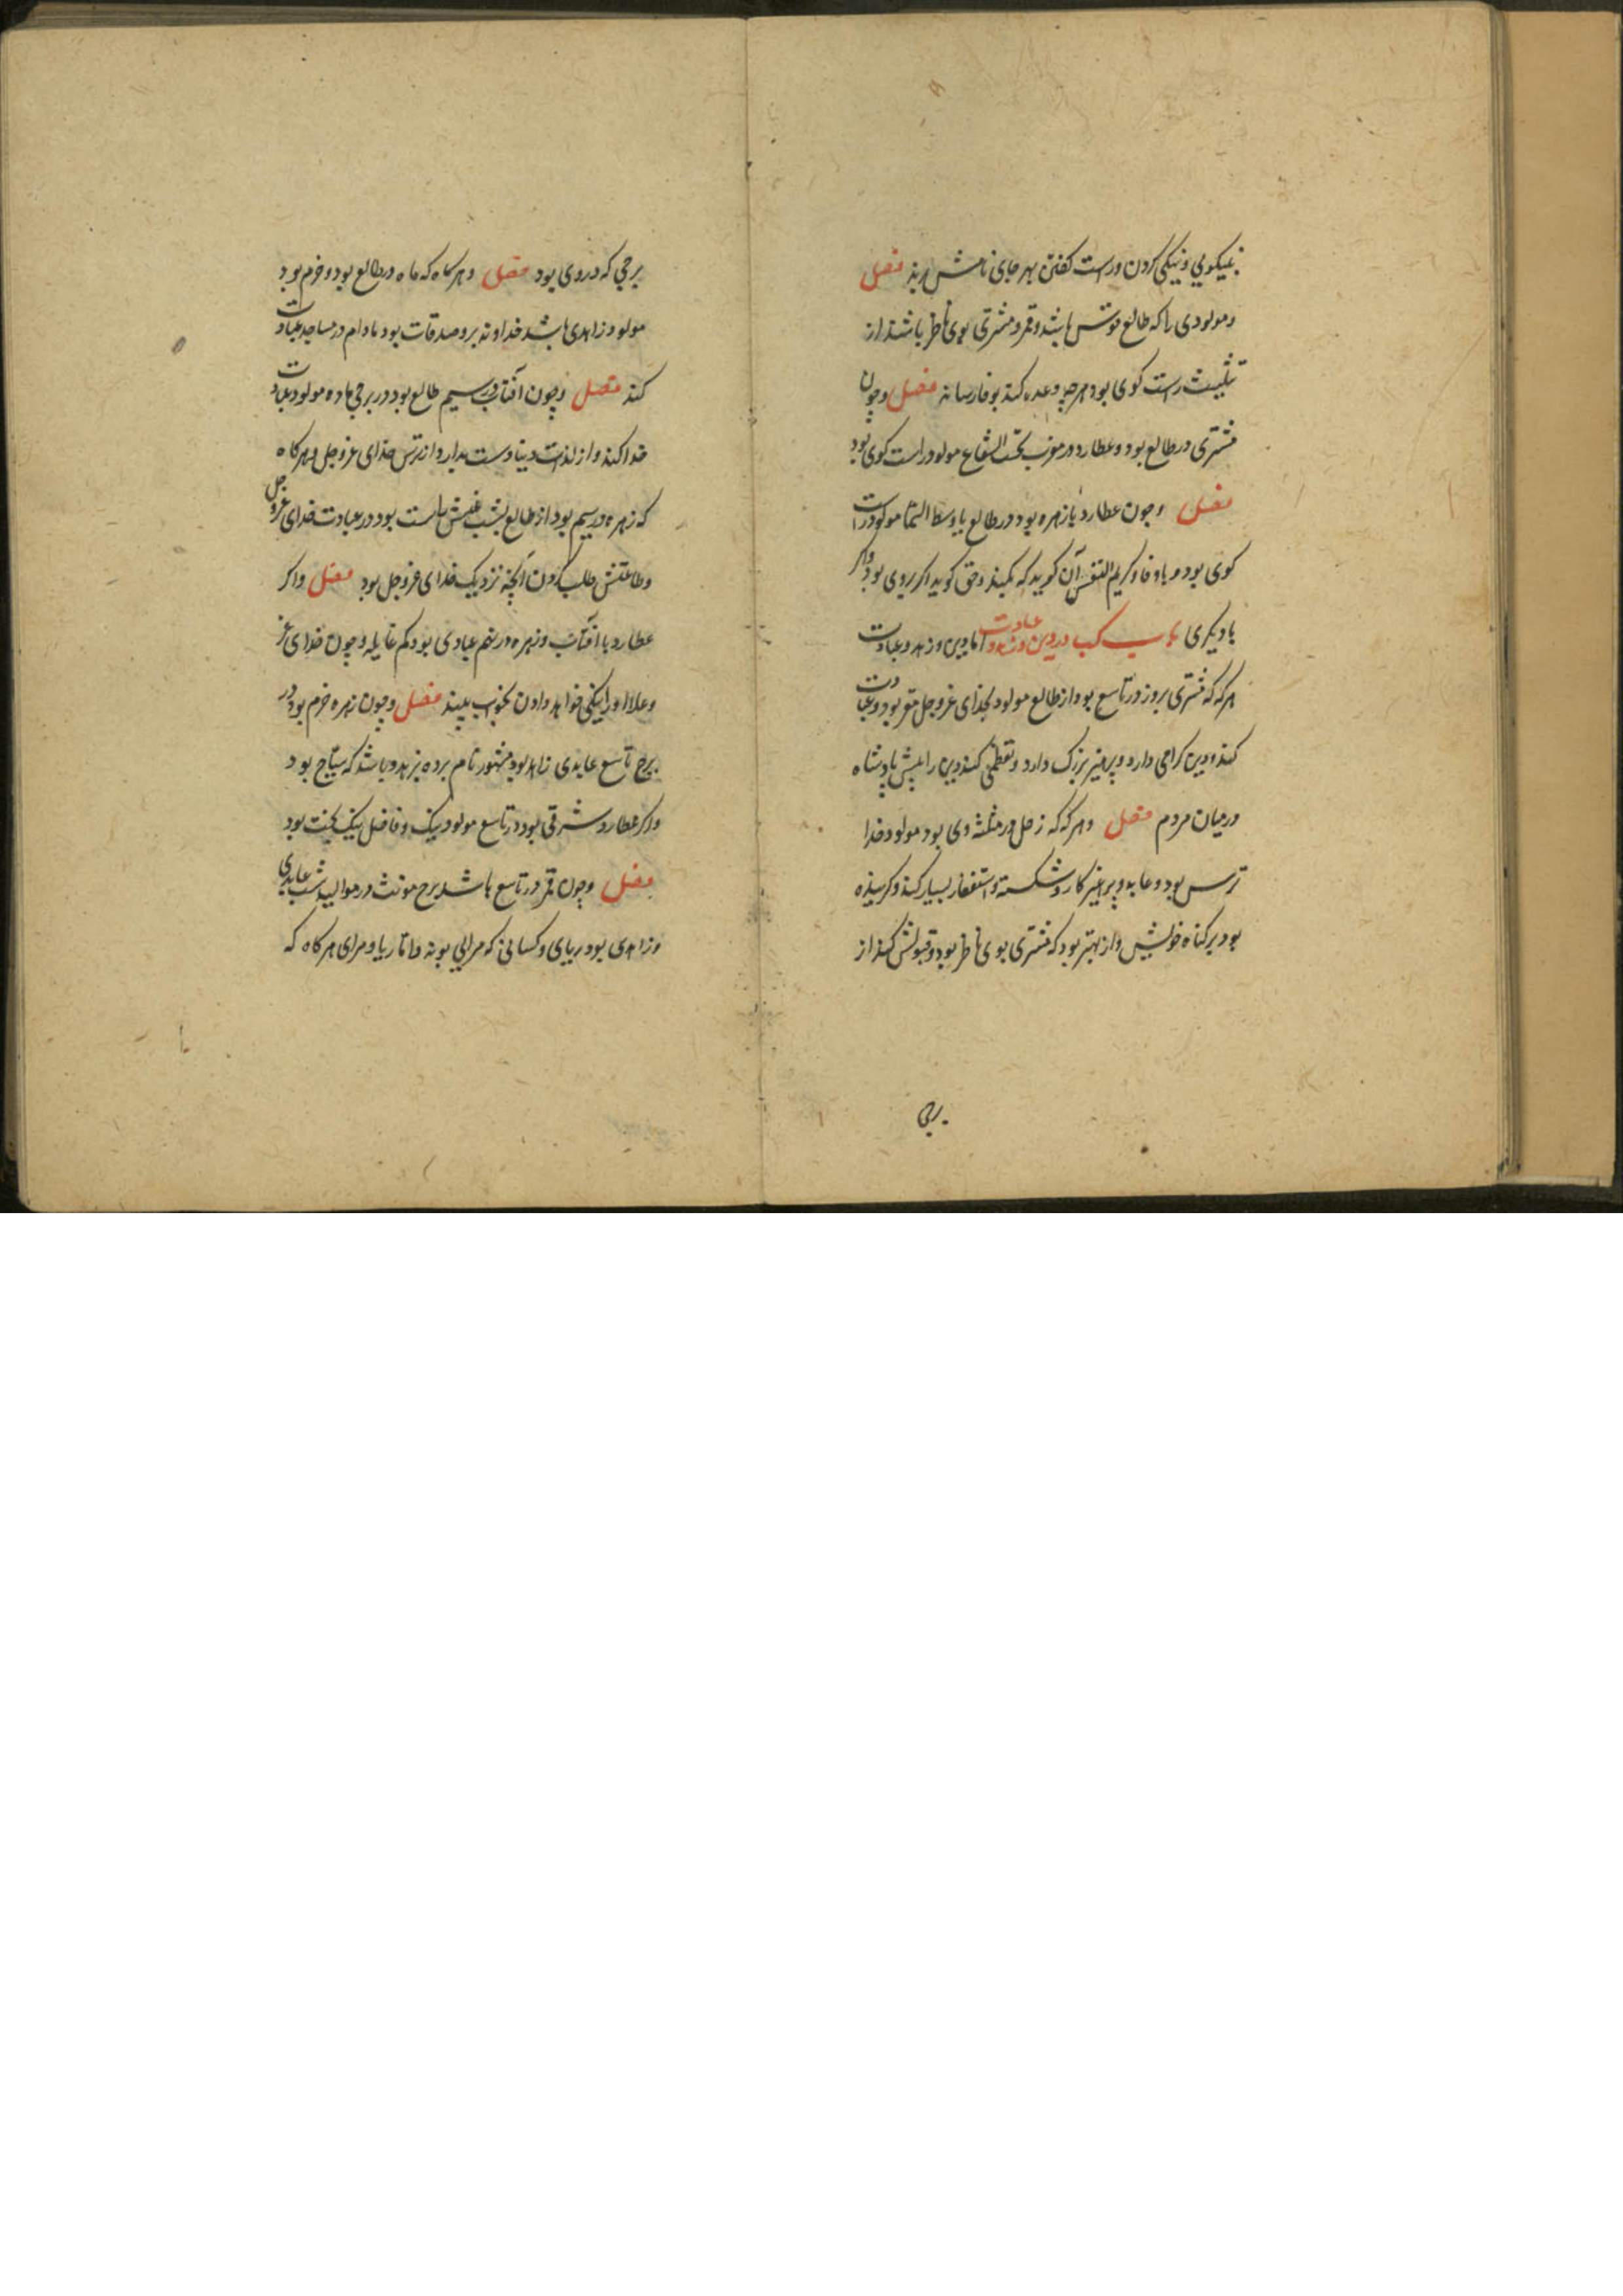 بنیکویی و نیکی کردن و راست کفتن بهر جای نامش برند فصل
و مولودی را که طالع قوس باشد و قمر و مشتری بوی ناظر باشند از
تثلیث راست کوی بود هرچه وعده کند بوفا رساند فصل و چون
مشتری در طالع بود و عطارد در مغرب تحت الشعاع مولود راست کوی بود
فصل و چون عطارد با زهره بود در طالع یا وسط السما مولود راست
کوی بود و باوفا و کریم النفس آن کوید که بکند و حق کوید اکر بروی بود و اکر
با دیکری در دین و زهد و عبادت اما دین و زهد و عبادت
هرکه که مشتری بروز در تاسع بود از طالع مولود بخدای عزوجل مقر بود و عبادت
کند و دین کرامی دارد و پرهیز بزرک دارد و تعظیم کند دین را پیش پادشاه
و میان مردم فصل و هرکه که زحل در مثلثه وی بود مولود خدا
ترس بود و عابد و پرهیز کار و شکسته و استغفار بسیار کند و کرینده
بود بر کناه خویش و از بهتر بود که مشتری بوی ناظر بود و قبولش کند از
برجی
برجی که در وی بود فصل و هرکاه که ماه در طالع بود و خرم بود
مولود زاهدی باشد خداوند بر و صدقات بود مادام در مساجد عبادت
کند فصل و چون آفتاب در سیم طالع بود در برجی ماده مولود عبادت
خدا کند و از لذات دنیا دست بدارد از ترس خدای عزوجل و هرکاه
که زهره در سیم بود از طالع بشب بود در عبادت خدای عزوجل
و طاعتش طلب کردن آنچه نزدیک خدای عزوجل بود فصل و اکر
عطارد با آفتاب و زهره در نهم عبادی بود کم غایله و چون خدای عز
و علا او را نیکی خواهد دادن بخواب بیند فصل و چون زهره خرم بود در
برج تاسع عابدی زاهد بود مشهور نام برده بزهد و باشد که سیاح بود
و اکر عطارد شرقی بود در تاسع مولود نیک و فاضل نیک نیت بود
فصل و چون قمر در تاسع باشد برج مونث در موالید شب عابدی
و زاهدی بود ریای و کسانی که مرایی بوند و اما ریا و مرای هرکاه که